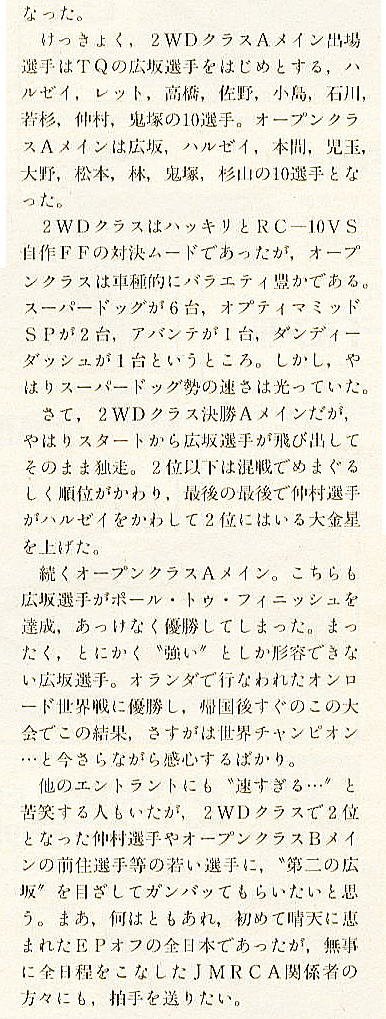 なった。
けっきょく，2WDクラスAメイン出場
選手はTQの広坂選手をはじめとする，ハ
ルゼイ，レット，高橋，佐野，小島，石川，
若杉，仲村，鬼塚の10選手。オープンクラ
スAメインは広坂，ハルゼイ，本間，児玉，
大野，松本，林，鬼塚，杉山の10選手とな
った。
2WDクラスはハッキリとRC—10VS
自作FFの対決ムードであったが，オープ
ンクラスは車種的にバラエティ豊かである。
スーパードッグが6台，オプティマミッド
SPが2台，アバンテが1台，ダンディー
ダッシュが1台というところ。しかし，や
はりスーパードッグ勢の速さは光っていた。
さて，2WDクラス決勝Aメインだが，
やはりスタートから広坂選手が飛び出して
そのまま独走。2位以下は混戦でめまぐる
しく順位がかわり，最後の最後で仲村選手
がハルゼイをかわして2位にはいる大金星
を上げた。
続くオープンクラスAメイン。こちらも
広坂選手がポール・トゥ・フィニッシュを
達成，あっけなく優勝してしまった。まっ
たく，とにかく〝強い〟としか形容できな
い広坂選手。オランダで行なわれたオンロ
ード世界戦に優勝し，帰国後すぐのこの大
会でこの結果，さすがは世界チャンピオン
…と今さらながら感心するばかり。
他のエントラントにも〝速すぎる…〟と
苦笑する人もいたが，2WDクラスで2位
となった仲村選手やオープンクラスBメイ
ンの前住選手等の若い選手に，〝第二の広
坂〟を目ざしてガンバッてもらいたいと思
う。まあ，何はともあれ，初めて晴天に恵
まれたEPオフの全日本であったが，無事
に全日程をこなしたJMRCA関係者の
方々にも，拍手を送りたい。